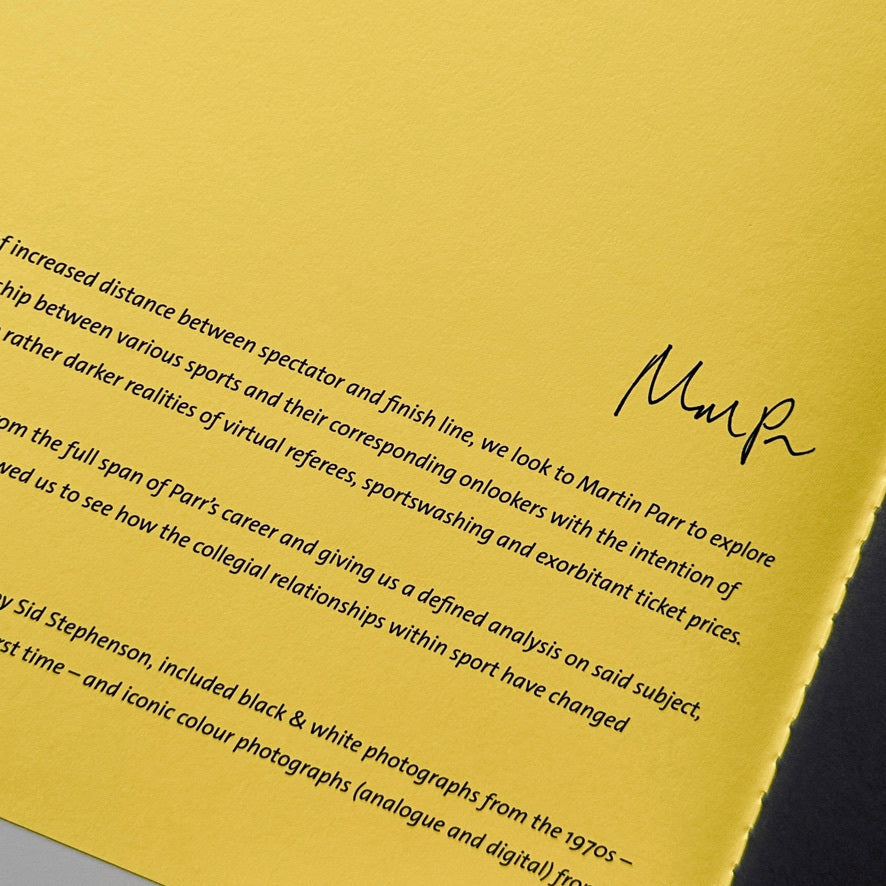 f increased distance between spectator and finish line, we look to Martin Parr to explore
hip between various sports and their corresponding onlookers with the intention of
rather darker realities of virtual referees, sportswashing and exorbitant ticket prices.
om the full span of Parr’s career and giving us a defined analysis on said subject,
wed us to see how the collegial relationships within sport have changed
by Sid Stephenson, included black & white photographs from the 1970s –
rst time – and iconic colour photographs (analogue and digital) from